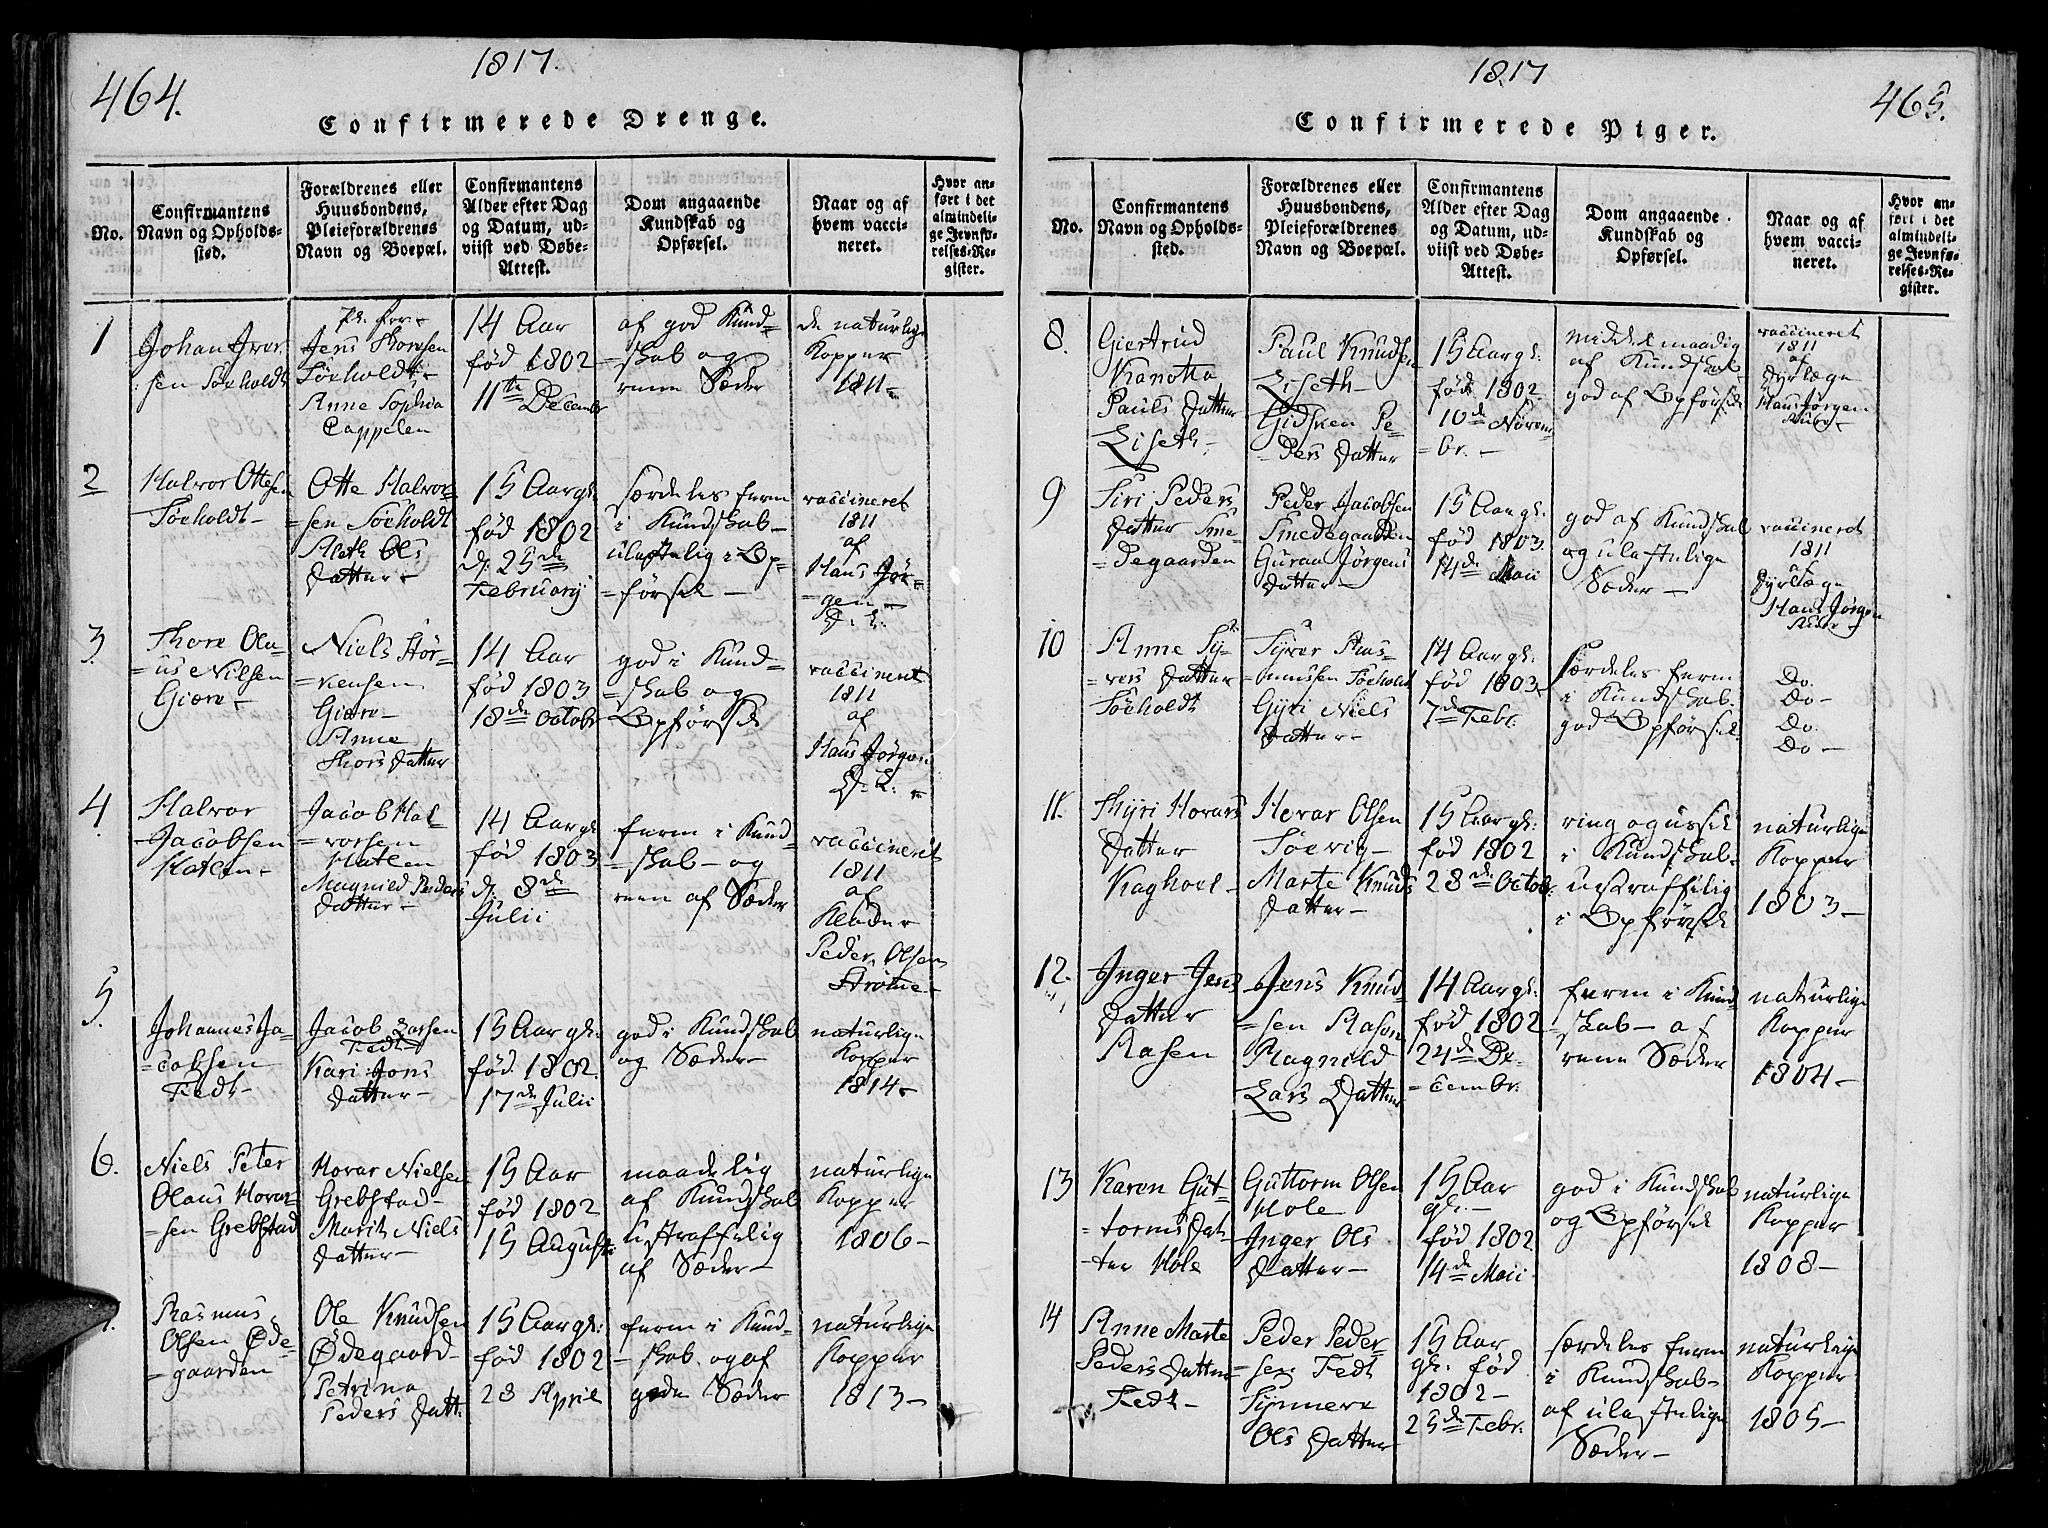 464.
1817.
Confirmerede Drenge.
No.
Confirmantens
Navn og Opholds-
sted.
Forældrenes eller
Huusbondens,
Pleieforældrenes
Navn og Boepæl.
Confirmantens
Alder efter Dag
og Datum, ud-
viist ved Døbe-
Attest.
Dom angaaende
Kundskab og
Opførsel.
Naar og af
hvem vacci-
neret.
Hvor an-
ført i det
almindeli-
ge Jevnfø-
relses-Re-
gister.
1
Johan Iver
sen Søeholdt
Jens Thorsen
Søeholdt
Anne Sophia
Cappelen
14 Aar
fød 1802
11te December
af god Kund-
=skab og
reene Sæder
de naturlige
Kopper
1811-
2
Halvor Ottesen
Søeholdt-
Otte Halvor-
=sen Søeholdt
Mleth Ols
Datter-
15 Aar gl.
fød 1802
d: 25de
Februarij
særdeles ferm
i Kundskab-
ulastelig i Op-
=førsel-
vaccineret
1811
af
Hans Jør-
=gen-
D. L.
3.
Thore Ola-
=us Nilsen
Giære-
Niels Stør-
=kersen
Giære-
Anne
Thors Datter
14 Aar
fød 1803
18de Octobr
god i Kund-
=skab og
Opførsel
vaccineret
1811
af
Hans Jørgen
D. L.
4
Halvor
Jacobsen
Hatlen-
Jacob Hal-
=vorsen
Hatlen
Magnild Peders
Datter-
14 Aar gl.
fød 1803
d: 8de
Julii
ferm i Kund
=skab- og
reen af Sæder
vaccineret
1811
af
Klæder
Peder Olsen
Strømme-
5.
Johannes Ja-
=cobsen
Fedt-
Jacob Larsen
Fedt
Kari Jons
Datter-
15 Aar gl:
fød 1802.
17de Julii
god i Kundskab
og Sæder-
naturlige
Kopper
1814-
6.
Niels Peter
Olaus Horar
=sen Grebstad
Horar Nielsen
Grebstad-
Marit Niels
Datter-
15 Aar
fød 1802
15 August
maadelig
af Kundskab
ustraffelig
af Sæder-
naturlige
Kopper
1806-
Rasmus
Olsen Øde-
=gaarden
Ole Knudsen
Ødegaard-
Petrina
Peders Datt.
15 Aar gl:
fød 1802
28 April
ferm i Kund-
=skab og af
gode Sæder
naturlige
Kopper
1813-
1817
465.
Confirmerede Piger.
No.
Confirmantens
Navn og Opholds-
sted.
Forældrenes eller
Huusbondens,
Pleieforældrenes
Navn og Boepæl.
Confirmantens
Alder efter Dag
og Datum, ud-
viist ved Døbe-
Attest.
Dom angaaende
Kundskab og
Opførsel.
Naar og af
hvem vacci-
neret.
Hvor an-
ført i det
almindeli-
ge Jevnfø-
relses-Re-
gister.
8.
Giertrud
Kanotha
Pauls Datter
Liseth-
Paul Knudsen
Liseth-
Gidsken Pe-
=ders Datter
15 Aar gl.
fød 1802
10de Novem
=br.-
middelmaadig
af Kundskab-
god af Opførsel
vaccineret
1811
af
Dyrlæge
Hans Jørgen
9
Siri Peders
Datter Sme-
=degaarden
Peder Jacobsen
Smedegaarden
Guraa Jørgens
Datter-
15 Aar gl.
fød 1803.
14de Maii
god af Kundskab
og ulastelige
Sæder-
vaccineret
1811
af
Dyrlæge
Hans Jørgen
10
Anne Sy-
=vers Datter
Søeholdt
Syver Ras-
=mussen Søeholdt
Gyri Niels
Datter-
14 Aar gl.
fød 1803-
7de Febr.
særdeles ferm
i Kundskab-
god Opførsel.
Do.
Do-
Do.
Do-
11.
Thyri Horars
Datter
Kaghoel-
Horar Olsen
Søevig-
Marte Knuds
Datter-
15 Aar gl:
fød 1802
28de Octob.
ring og ussel
i Kundskab-
ustraffelig
i Opførsel
naturlige
Kopper
1803-
12.
Inger Jens
Datter
Aasen
Jens Knud-
=sen Aasen
Ragnild
Lars Datter
14 Aar gl.
fød 1802
24de De-
=cembr.
ferm i Kund
=skab- af
rene Sæder
naturlige
Kopper
1804-
13
Karen Gut-
=torms Dat-
=ter Hole
Guttorm Olsen
Hole
Inger Ols
Datter-
15 Aar
gl:-
fød 1802.
14de Maii
god i Kundskab
og Opførsel
naturlige
Kopper
1808-
14
Anne Marte
Peders Datter
Fedt-
Peder Peder-
=sen Fedt
Synneve
Ols Datter
15 Aar
gl. fød
1802-
25de Febr.
særdeles ferm
i Kundskab-
af ulastelige
Sæder-
naturlige
Kopper
1805-